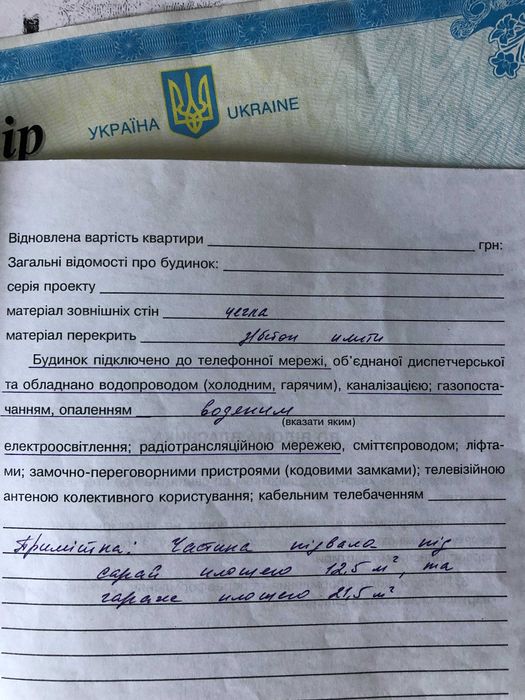 ір
УКРАЇНА UKRAINE
Відновлена вартість квартири грн:
Загальні відомості про будинок:
серія проекту
матеріал зовнішніх стін цегла
матеріал перекрить з/бетон плити
Будинок підключено до телефонної мережі, об'єднаної диспетчерської
та обладнано водопроводом (холодним, гарячим), каналізацією; газопоста-
чанням, опаленням воденим
(вказати яким)
електроосвітлення; радіотрансляційною мережею, сміттєпроводом; ліфта-
ми; замочно-переговорними пристроями (кодовими замками); телевізійною
антеною колективного користування; кабельним телебаченням
Примітка: Частина підвала під
сарай площею 12,5 м², та
гараже площею 21,5 м²